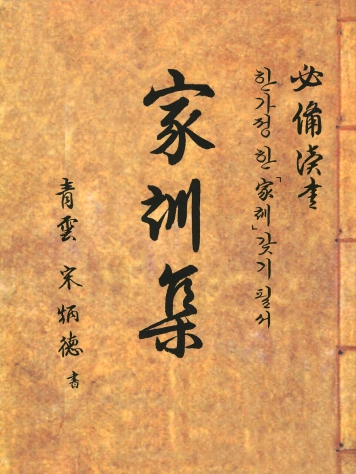 必備讀書
한가정 한 「家訓」 갖기 필서
家訓集
青雲 宋炳德 書